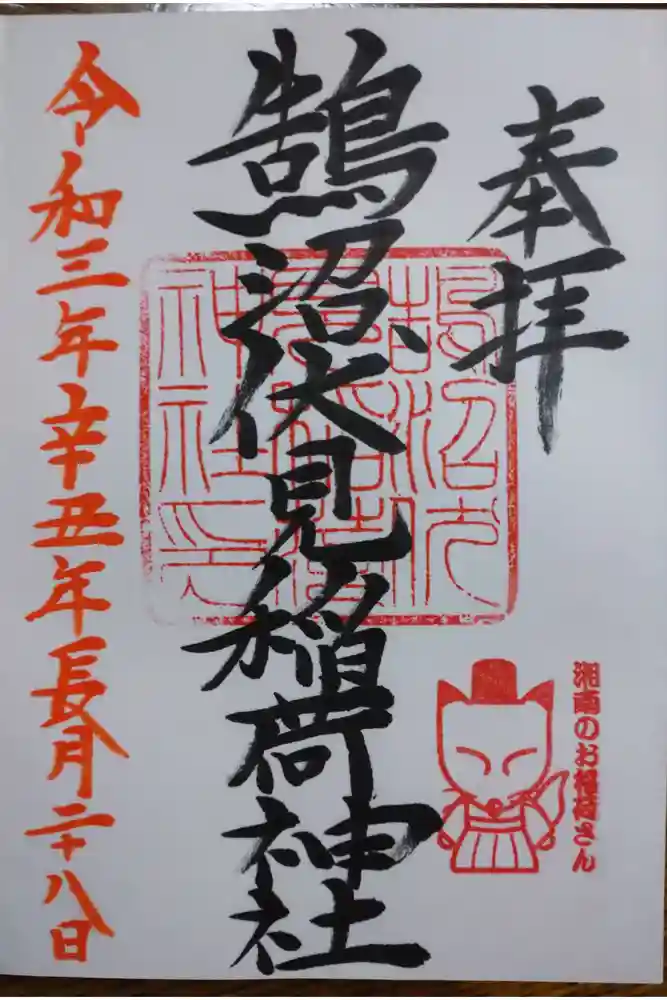 奉拝
鵠沼伏見稲荷神社
鵠沼伏
見稲荷
神社印
湘南のお稲荷さん
令和三年辛丑年長月二十八日